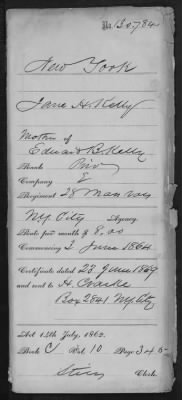 No. 130,784
New York
Jane H. Kelly
Mother of
Edward B. Kelly
Rank Priv
Company E
Regiment 28 Mass vols
N.Y. City Agency
Rate per month $ 8.00
Commencing 3 June 1864
Certificate dated 23 June 1869
and sent to H. Clarke
Box 2841 N.Y. City
Act 14th July, 1862.
Book C Vol. 10 Page 345
Clerk.